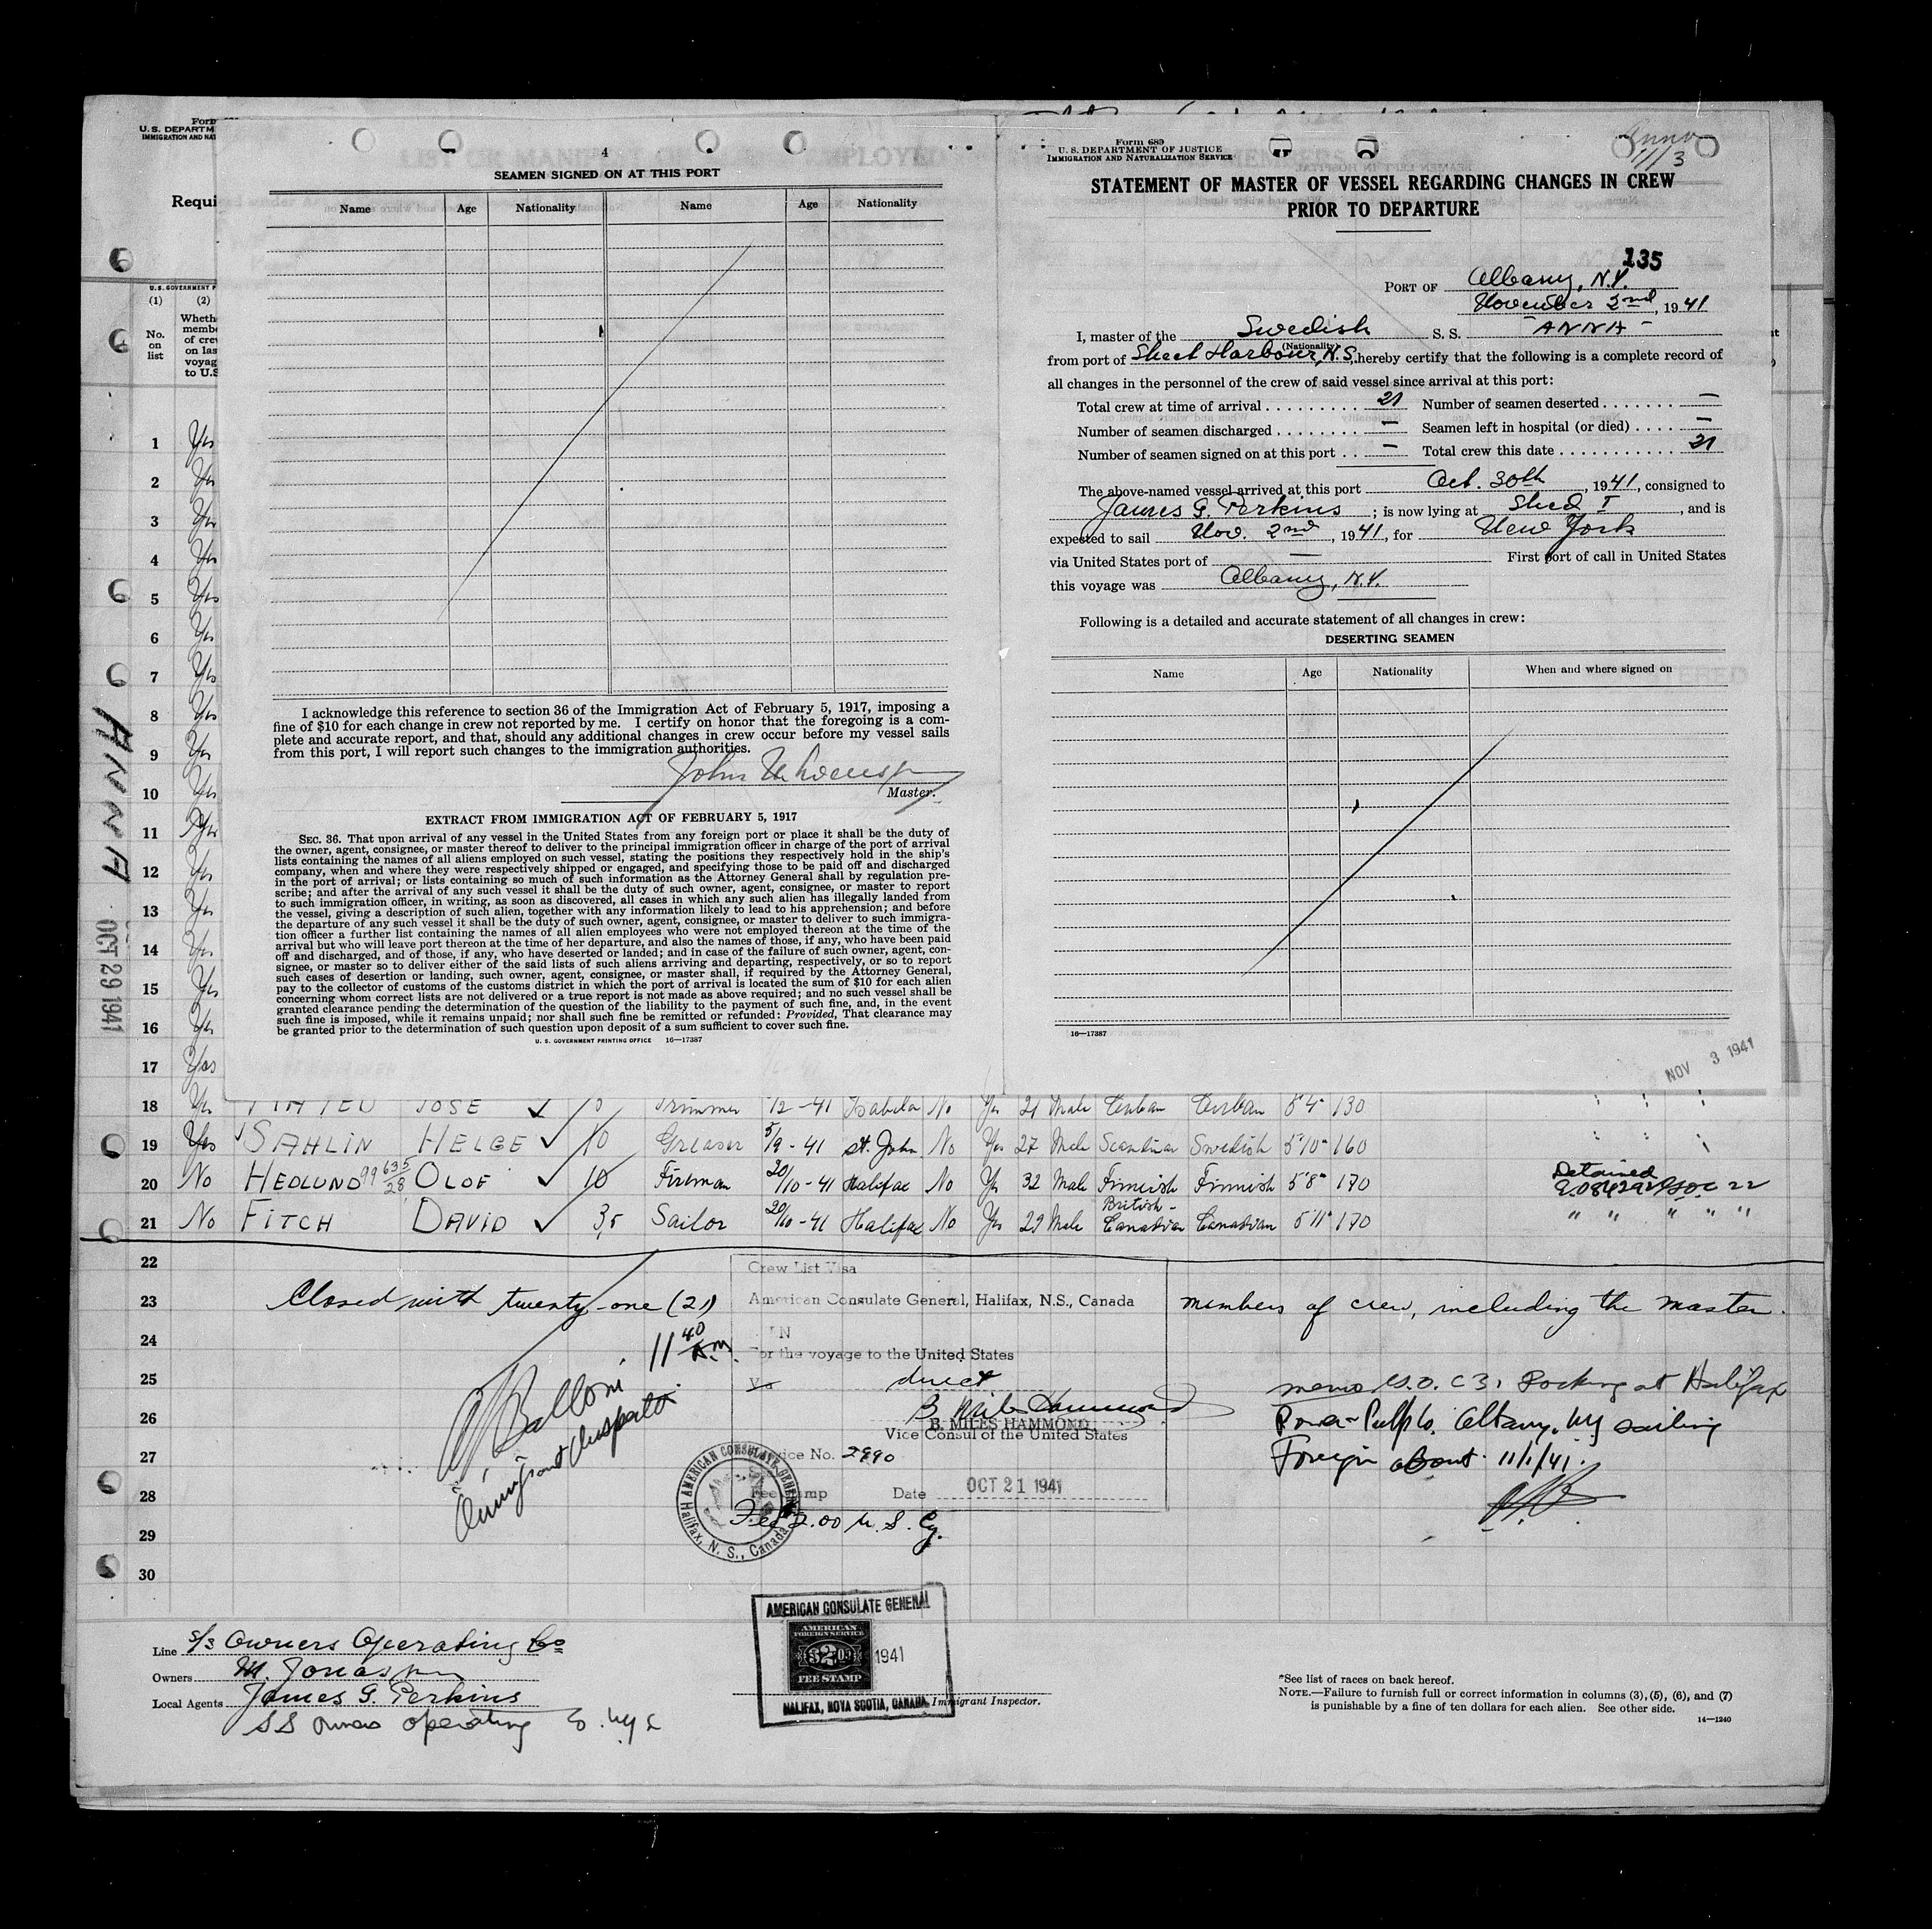 Form
U.S. DEPARTM
IMMIGRATION AND NAT
Requi
U.S. GOVERNMENT P
(1) (2)
No. on list
Wheth
membe
of crew
on las
voyag
to U.S
1 Yes
2 Yes
3 Yes
4 Yes
5 Yes
6 Yes
7 Yes
8 Yes
9 Yes
10 Yes
11 Yes
12 Yes
13 Yes
14 Yes
15 Yes
16 Yes
17 Yes
ANNA
OCT 29 1941
4
SEAMEN SIGNED ON AT THIS PORT
Name Age Nationality Name Age Nationality
I acknowledge this reference to section 36 of the Immigration Act of February 5, 1917, imposing a
fine of $10 for each change in crew not reported by me. I certify on honor that the foregoing is a com-
plete and accurate report, and that, should any additional changes in crew occur before my vessel sails
from this port, I will report such changes to the immigration authorities.
John
Master.
EXTRACT FROM IMMIGRATION ACT OF FEBRUARY 5, 1917
SEC. 36. That upon arrival of any vessel in the United States from any foreign port or place it shall be the duty of
the owner, agent, consignee, or master thereof to deliver to the principal immigration officer in charge of the port of arrival
lists containing the names of all aliens employed on such vessel, stating the positions they respectively hold in the ship's
company, when and where they were respectively shipped or engaged, and specifying those to be paid off and discharged
in the port of arrival; or lists containing so much of such information as the Attorney General shall by regulation pre-
scribe; and after the arrival of any such vessel it shall be the duty of such owner, agent, consignee, or master to report
to such immigration officer, in writing, as soon as discovered, all cases in which any such alien has illegally landed from
the vessel, giving a description of such alien, together with any information likely to lead to his apprehension; and before
the departure of any such vessel it shall be the duty of such owner, agent, consignee, or master to deliver to such immigra-
tion officer a further list containing the names of all alien employees who were not employed thereon at the time of the
arrival but who will leave port thereon at the time of her departure, and also the names of those, if any, who have been paid
off and discharged, and of those, if any, who have deserted or landed; and in case of the failure of such owner, agent, con-
signee, or master so to deliver either of the said lists of such aliens arriving and departing, respectively, or so to report
such cases of desertion or landing, such owner, agent, consignee, or master shall, if required by the Attorney General,
pay to the collector of customs of the customs district in which the port of arrival is located the sum of $10 for each alien
concerning whom correct lists are not delivered or a true report is not made as above required; and no such vessel shall be
granted clearance pending the determination of the question of the liability to the payment of such fine, and, in the event
such fine is imposed, while it remains unpaid; nor shall such fine be remitted or refunded: Provided, That clearance may
be granted prior to the determination of such question upon deposit of a sum sufficient to cover such fine.
U. S. GOVERNMENT PRINTING OFFICE 16—17387
Form 689
U. S. DEPARTMENT OF JUSTICE
IMMIGRATION AND NATURALIZATION SERVICE
11/3
STATEMENT OF MASTER OF VESSEL REGARDING CHANGES IN CREW
PRIOR TO DEPARTURE
135
PORT OF Albany, N.Y.
November 2nd, 1941
I, master of the Swedish S. S. "ANNA"
(Nationality)
from port of Sheet Harbour, N.S., hereby certify that the following is a complete record of
all changes in the personnel of the crew of said vessel since arrival at this port:
Total crew at time of arrival 21 Number of seamen deserted —
Number of seamen discharged — Seamen left in hospital (or died) —
Number of seamen signed on at this port — Total crew this date 21
The above-named vessel arrived at this port Oct. 30th, 1941, consigned to
James G. Perkins; is now lying at Shed I, and is
expected to sail Nov. 2nd, 1941, for New York
via United States port of — First port of call in United States
this voyage was Albany, N.Y.
Following is a detailed and accurate statement of all changes in crew:
DESERTING SEAMEN
Name Age Nationality When and where signed on
16—17387
NOV 3 1941
18 Yes JOSE ✓ 10 Trimmer 1/2-41 Isabela No Yes 21 Male Cuban Cuban 5'4" 130
19 Yes ✓ SAHLIN HELGE ✓ 10 Greaser 5/9-41 St. John No Yes 27 Male Scandinav Swedish 5'10" 160
20 No HEDLUND 99 635/28 OLOF ✓ 10 Fireman 20/10-41 Halifax No Yes 32 Male Finnish Finnish 5'8" 170 Detained
21 No FITCH DAVID ✓ 3,5 Sailor 20/10-41 Halifax No Yes 29 Male British-Canadian Canadian 5'11" 170 " " " " "
22
23 Closed with twenty-one (21) members of crew, including the Master.
24
25
26
27
28
29
30
11 40 A.M.
Immigrant Inspector
Crew List Visa
American Consulate General, Halifax, N.S., Canada
For the voyage to the United States
Via direct
B. Miles Hammond
B. MILES HAMMOND
Vice Consul of the United States
Service No. 2990
Fee Stamp Date OCT 21 1941
Fee 2.00 U.S. Cy.
AMERICAN CONSULATE GENERAL
Halifax, N. S., Canada
memo at Halifax
Albany, NY sailing
Foreign about 11/1/41.
AMERICAN CONSULATE GENERAL
AMERICAN
FOREIGN SERVICE
$2.00
FEE STAMP
1941
HALIFAX, NOVA SCOTIA, CANADA
Immigrant Inspector.
Line S/S Owners Operating Co
Owners M. Jonasson
Local Agents James G. Perkins
SS Owners Operating Co. NYC
*See list of races on back hereof.
NOTE.—Failure to furnish full or correct information in columns (3), (5), (6), and (7)
is punishable by a fine of ten dollars for each alien. See other side.
14—1240